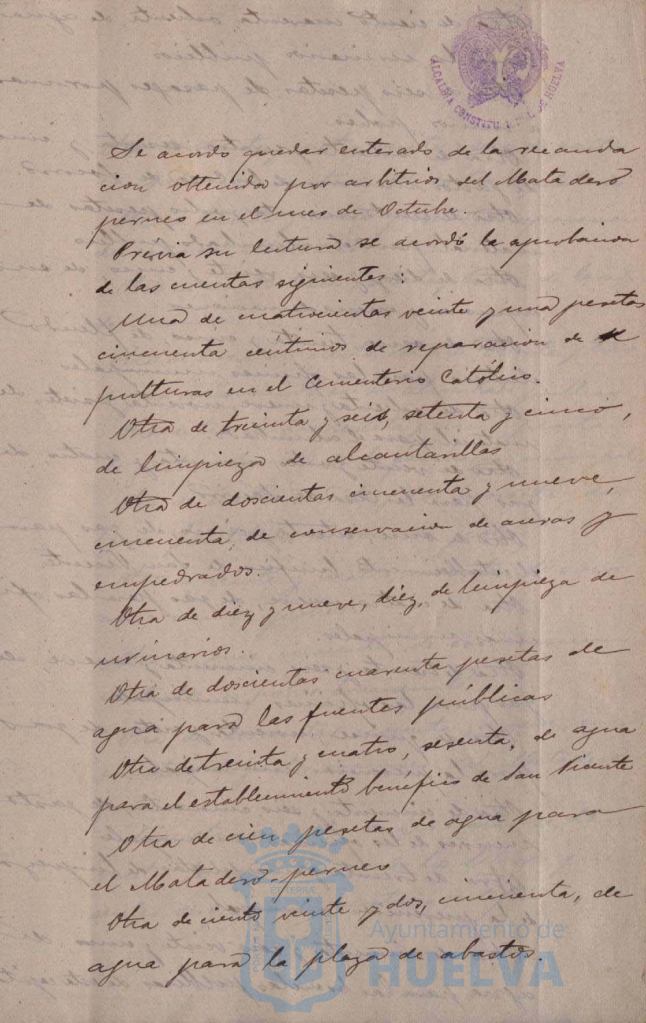 ALCALDIA CONSTITU L DE HUELVA
Se acordo quedar enterado de la recauda
cion obtenida por arbitrios del Matadero
pernes en el mes de Octubre.
Previa su lectura se acordó la aprobacion
de las cuentas siguientes:
Una de cuatrocientas veinte y una pesetas
cincuenta centimos de reparacion de se
pulturas en el Cementerio Católico.
Otra de treinta y seis, setenta y cinco,
de limpieza de alcantarillas
Otra de doscientas cincuenta y nueve,
cincuenta, de conservacion de aceras y
empedrados.
Otra de diez y nueve, diez, de limpieza de
urinarios.
Otra de doscientas cuarenta pesetas de
agua para las fuentes públicas
Otra de treinta y cuatro, sesenta, de agua
para el establecimiento benéfico de San Vicente
Otra de cien pesetas de agua para
el Matadero pernes
Otra de ciento veinte y dos, cincuenta, de
agua para la plaza de abastos.
Ayuntamiento de
HUELVA